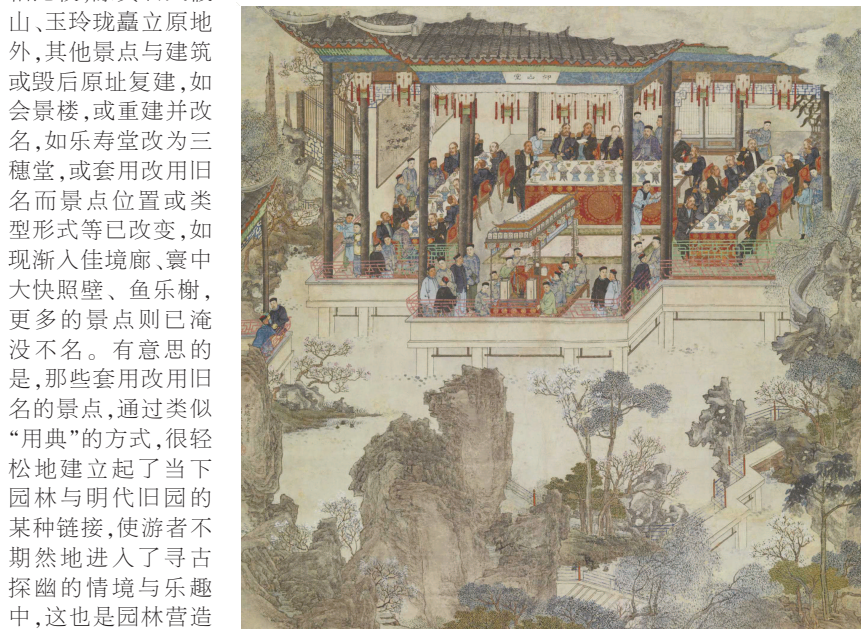 山、玉玲珑矗立原地
外,其他景点与建筑
或毁后原址复建,如
会景楼,或重建并改
名,如乐寿堂改为三
穗堂,或套用改用旧
名而景点位置或类
型形式等已改变,如
现渐入佳境廊、寰中
大快照壁、鱼乐榭,
更多的景点则已淹
没不名。有意思的
是,那些套用改用旧
名的景点,通过类似
“用典”的方式,很轻
松地建立起了当下
园林与明代旧园的
某种链接,使游者不
期然地进入了寻古
探幽的情境与乐趣
中,这也是园林营造
堂山仰